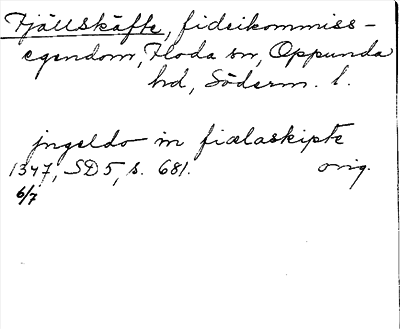 Fjällskäfte, fideikommiss-
egendom, Floda sn, Oppunda
hd, Söderm. l.
jngeldo in fiælaskipte
1347, SD 5, s. 681. orig.
6/7